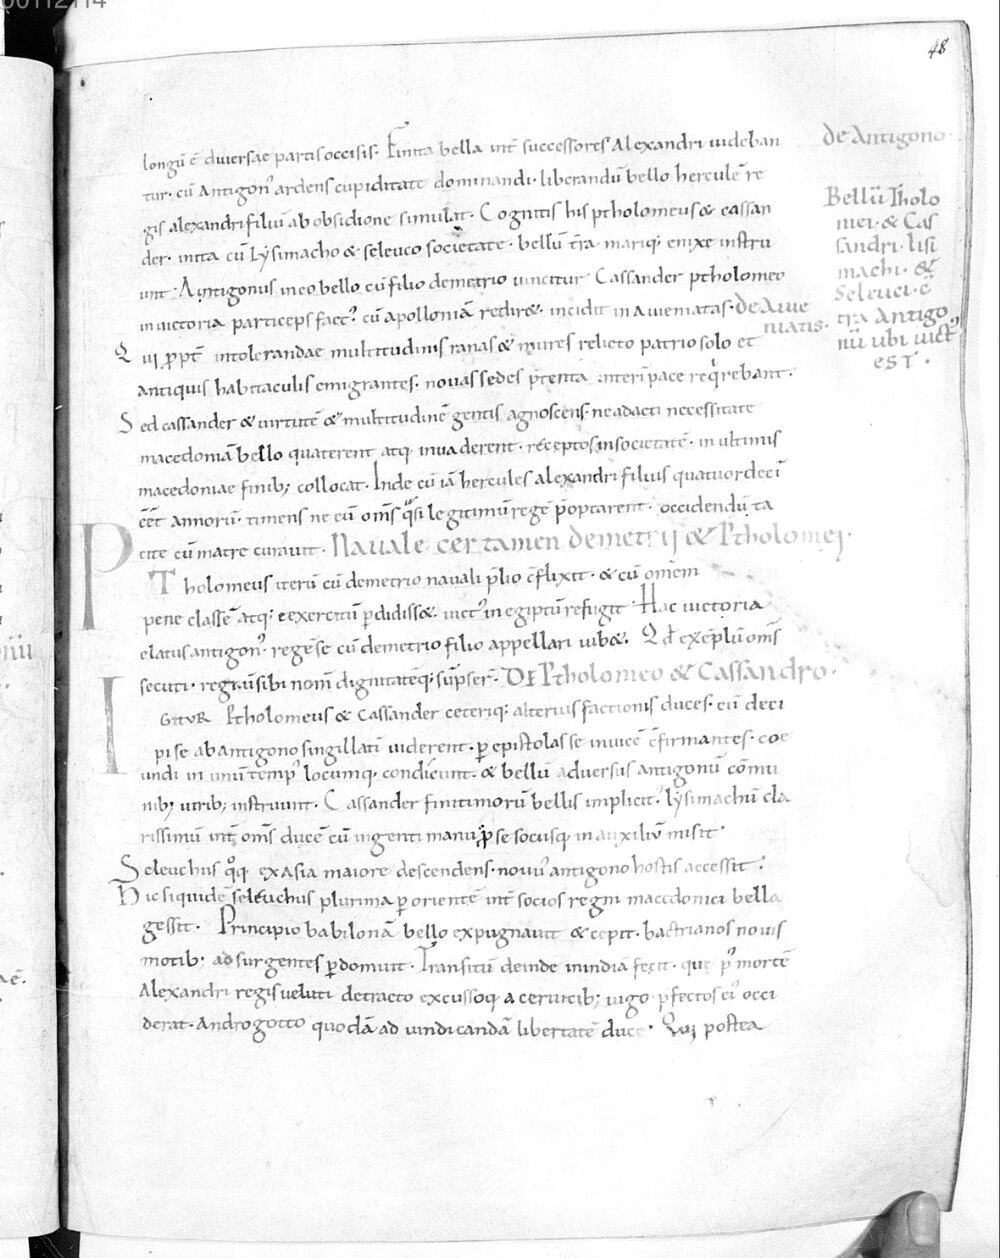 48
longū ē diuersae partis occisis. Finita bella int̄ successores Alexandri uideban
de Antigono.
tur. cū Antigon' ardens cupiditate dominandi. liberandū bello herculē re
gis alexandri filiū ab obsidione simulat. Cognitis his ptholomeus & cassan
der. inita cū lysimacho & seleuco societate. bellū t̄ra mariq; enixe instru
unt. Antigonus in eo bello cū filio demetrio uincitur. Cassander ptholomeo
Bellū Tholo
mei. & Cas
sandri. lisi
machi. &
Seleuci. c̄
tra Antigo
nū ubi uict'
EST.
in uictoria particeps fact'. cū apolloniā redir&. incidit in auieniatas.
de Auie
niatis.
Qui ꝓpt̄ intolerandae multitudinis ranas & mures relicto patrio solo et
antiquis habitaculis emigrantes. nouas sedes p̄tenta interī pace req̄rebant.
Sed cassander & uirtutē & multitudinē gentis agnoscens. ne adacti necessitate
macedoniā bello quaterent atq; inuaderent. receptos in societatē. in ultimis
macedoniae finib; collocat. Inde cū iā hercules alexandri filius quatuordeci
eēt annorū. timens ne eū om̄s q̄si legitimū regē p̄optarent. occidendū ta
cite cū matre curauit. Nauale certamen demetrij & Ptholomej.
PTholomeus iterū cū demetrio nauali p̄lio c̄flixit. & cū om̄em
pene classē atq; exercitū ꝑdidiss&. uict' in egiptū refugit. Hac uictoria
elatus antigon'. regē se cū demetrio filio appellari iub&. Qd̄ exēplū om̄s
secuti. regnū sibi nom̄ dignitatēq; sūpser̄. DE Ptholomeo & Cassandro.
IGITUR Ptholomeus & Cassander ceteriq; alterius factionis duces. cū deci
pi se ab antigono singillatī uiderent. ꝑ epistolas se inuicē c̄firmantes. coe
undi in unū temp' locumq; condicunt. & bellū aduersus antigonū cōmu
nib; uirib; instruunt. Cassander finitimorū bellis implicit'. lysimachū cla
rissimū int̄ om̄s ducē cū ingenti manu ꝓ se sociisq; in auxiliū misit.
Seleuchus qͦq; ex asia maiore descendens. nouu' antigono hostis accessit.
Hic siquidē seleuchus plurima ꝑ orientē int̄ socios regni macedonici bella
gessit. Principio babilonā bello expugnauit & cepit. bactrianos nouis
motib; adsurgentes ꝑdomuit. Transitū deinde in indiā fecit. que p' mortē
Alexandri regis ueluti detracto excussoq; a ceruicib; iugo p̄fectos ei' occi
derat. Androgotto quodā ad uindicandā libertatē duce. Qui postea